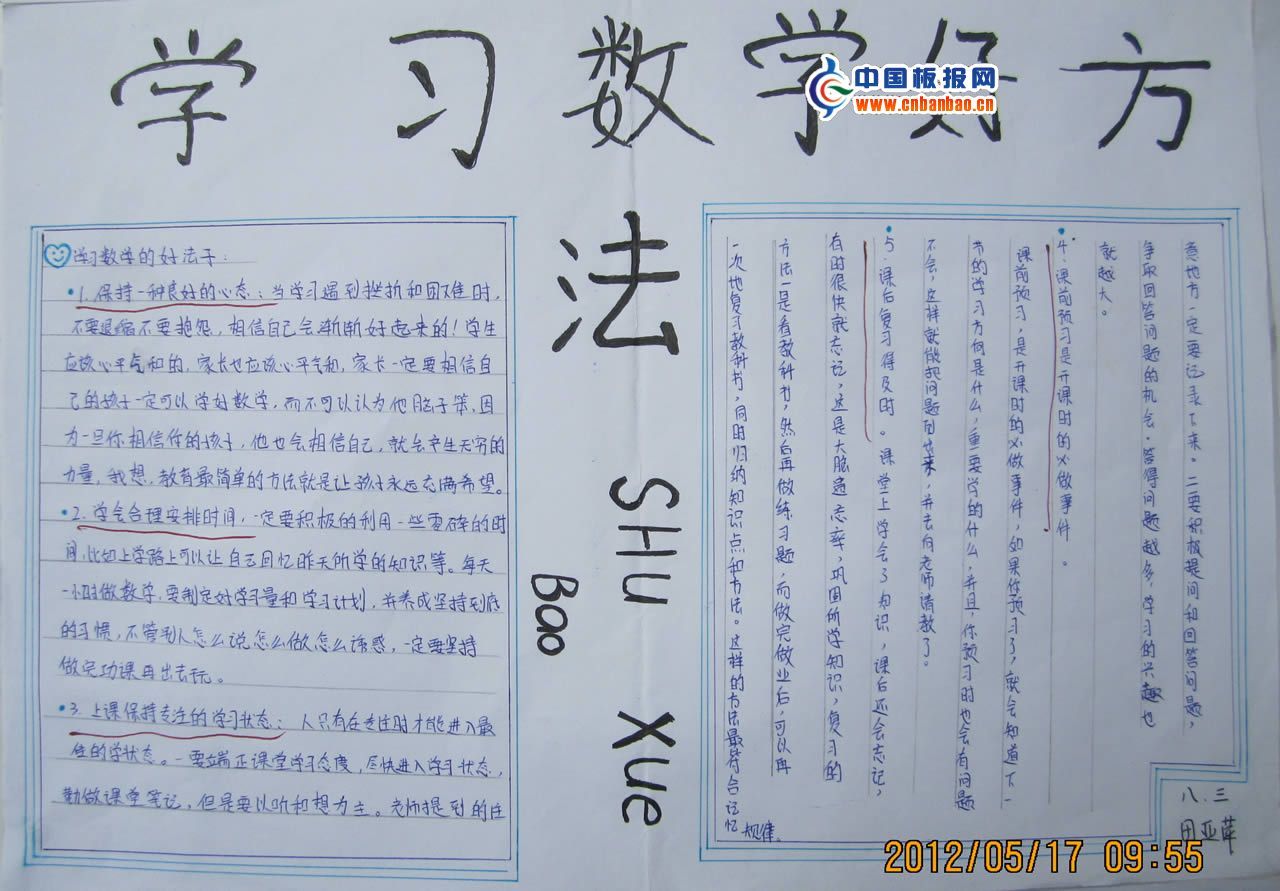 学习数学好方
法
中国板报网
www.cnbanbao.cn
SHU XUe
Bao
学习数学的好法子：
1.保持一种良好的心态：当学习遇到挫折和困难时，
不要退缩不要抱怨，相信自己会渐渐好起来的！学生
应该心平气和的，家长也应该心平气和，家长一定要相信自
己的孩子一定可以学好数学，而不可以认为他脑子笨，因
为一旦你相信你的孩子，他也会相信自己，就会产生无穷的
力量，我想，教育最简单的方法就是让孩子永远充满希望。
2.学会合理安排时间，一定要积极的利用一些零碎的时
间，比如上学路上可以让自己回忆昨天所学的知识等。每天
一小时做数学，要制定好学习量和学习计划，并养成坚持到底
的习惯，不管别人怎么说怎么做怎么诱惑，一定要坚持
做完功课再出去玩。
3.上课保持专注的学习状态：人只有在专注时才能进入最
佳的学状态。一要端正课堂学习态度，尽快进入学习状态，
勤做课堂笔记，但是要以听和想为主。老师提到的任
意地方一定要记录下来。二要积极提问和回答问题，
争取回答问题的机会。答得问题越多，学习的兴趣也
就越大。
4.课前预习是开课时的必做事件。
课前预习，是开课时的必做事件，如果你预习了，就会知道下一
节的学习方向是什么，重要学的什么，并且，你预习时也会有问题
不会，这样就做把问题到来，并去向老师请教了。
5.课后复习得及时。课堂上学会了知识，课后还会忘记，
有时很快就忘记，这是大脑遗忘率，巩固所学知识，复习的
方法一是看教科书，然后再做练习题，而做完做业后，可以再
一次地复习教科书，同时归纳知识点和方法。这样的方法最符合记忆
规律。
八.三
田亚萍
2012/05/17 09:55